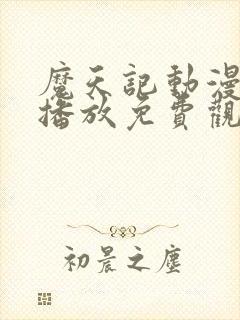 魔天記動漫
播放免費觀
初晨之塵